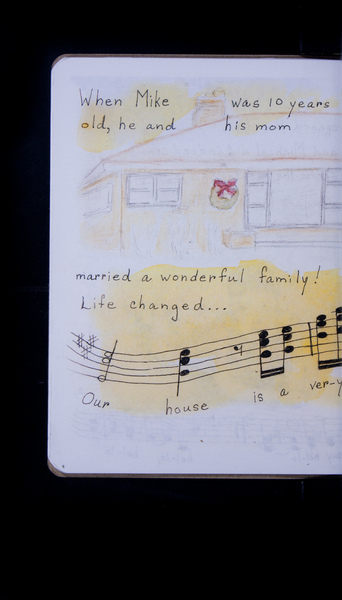 When Mike was 10 years
old, he and his mom
married a wonderful family!
Life changed...
Our house is a ver-y